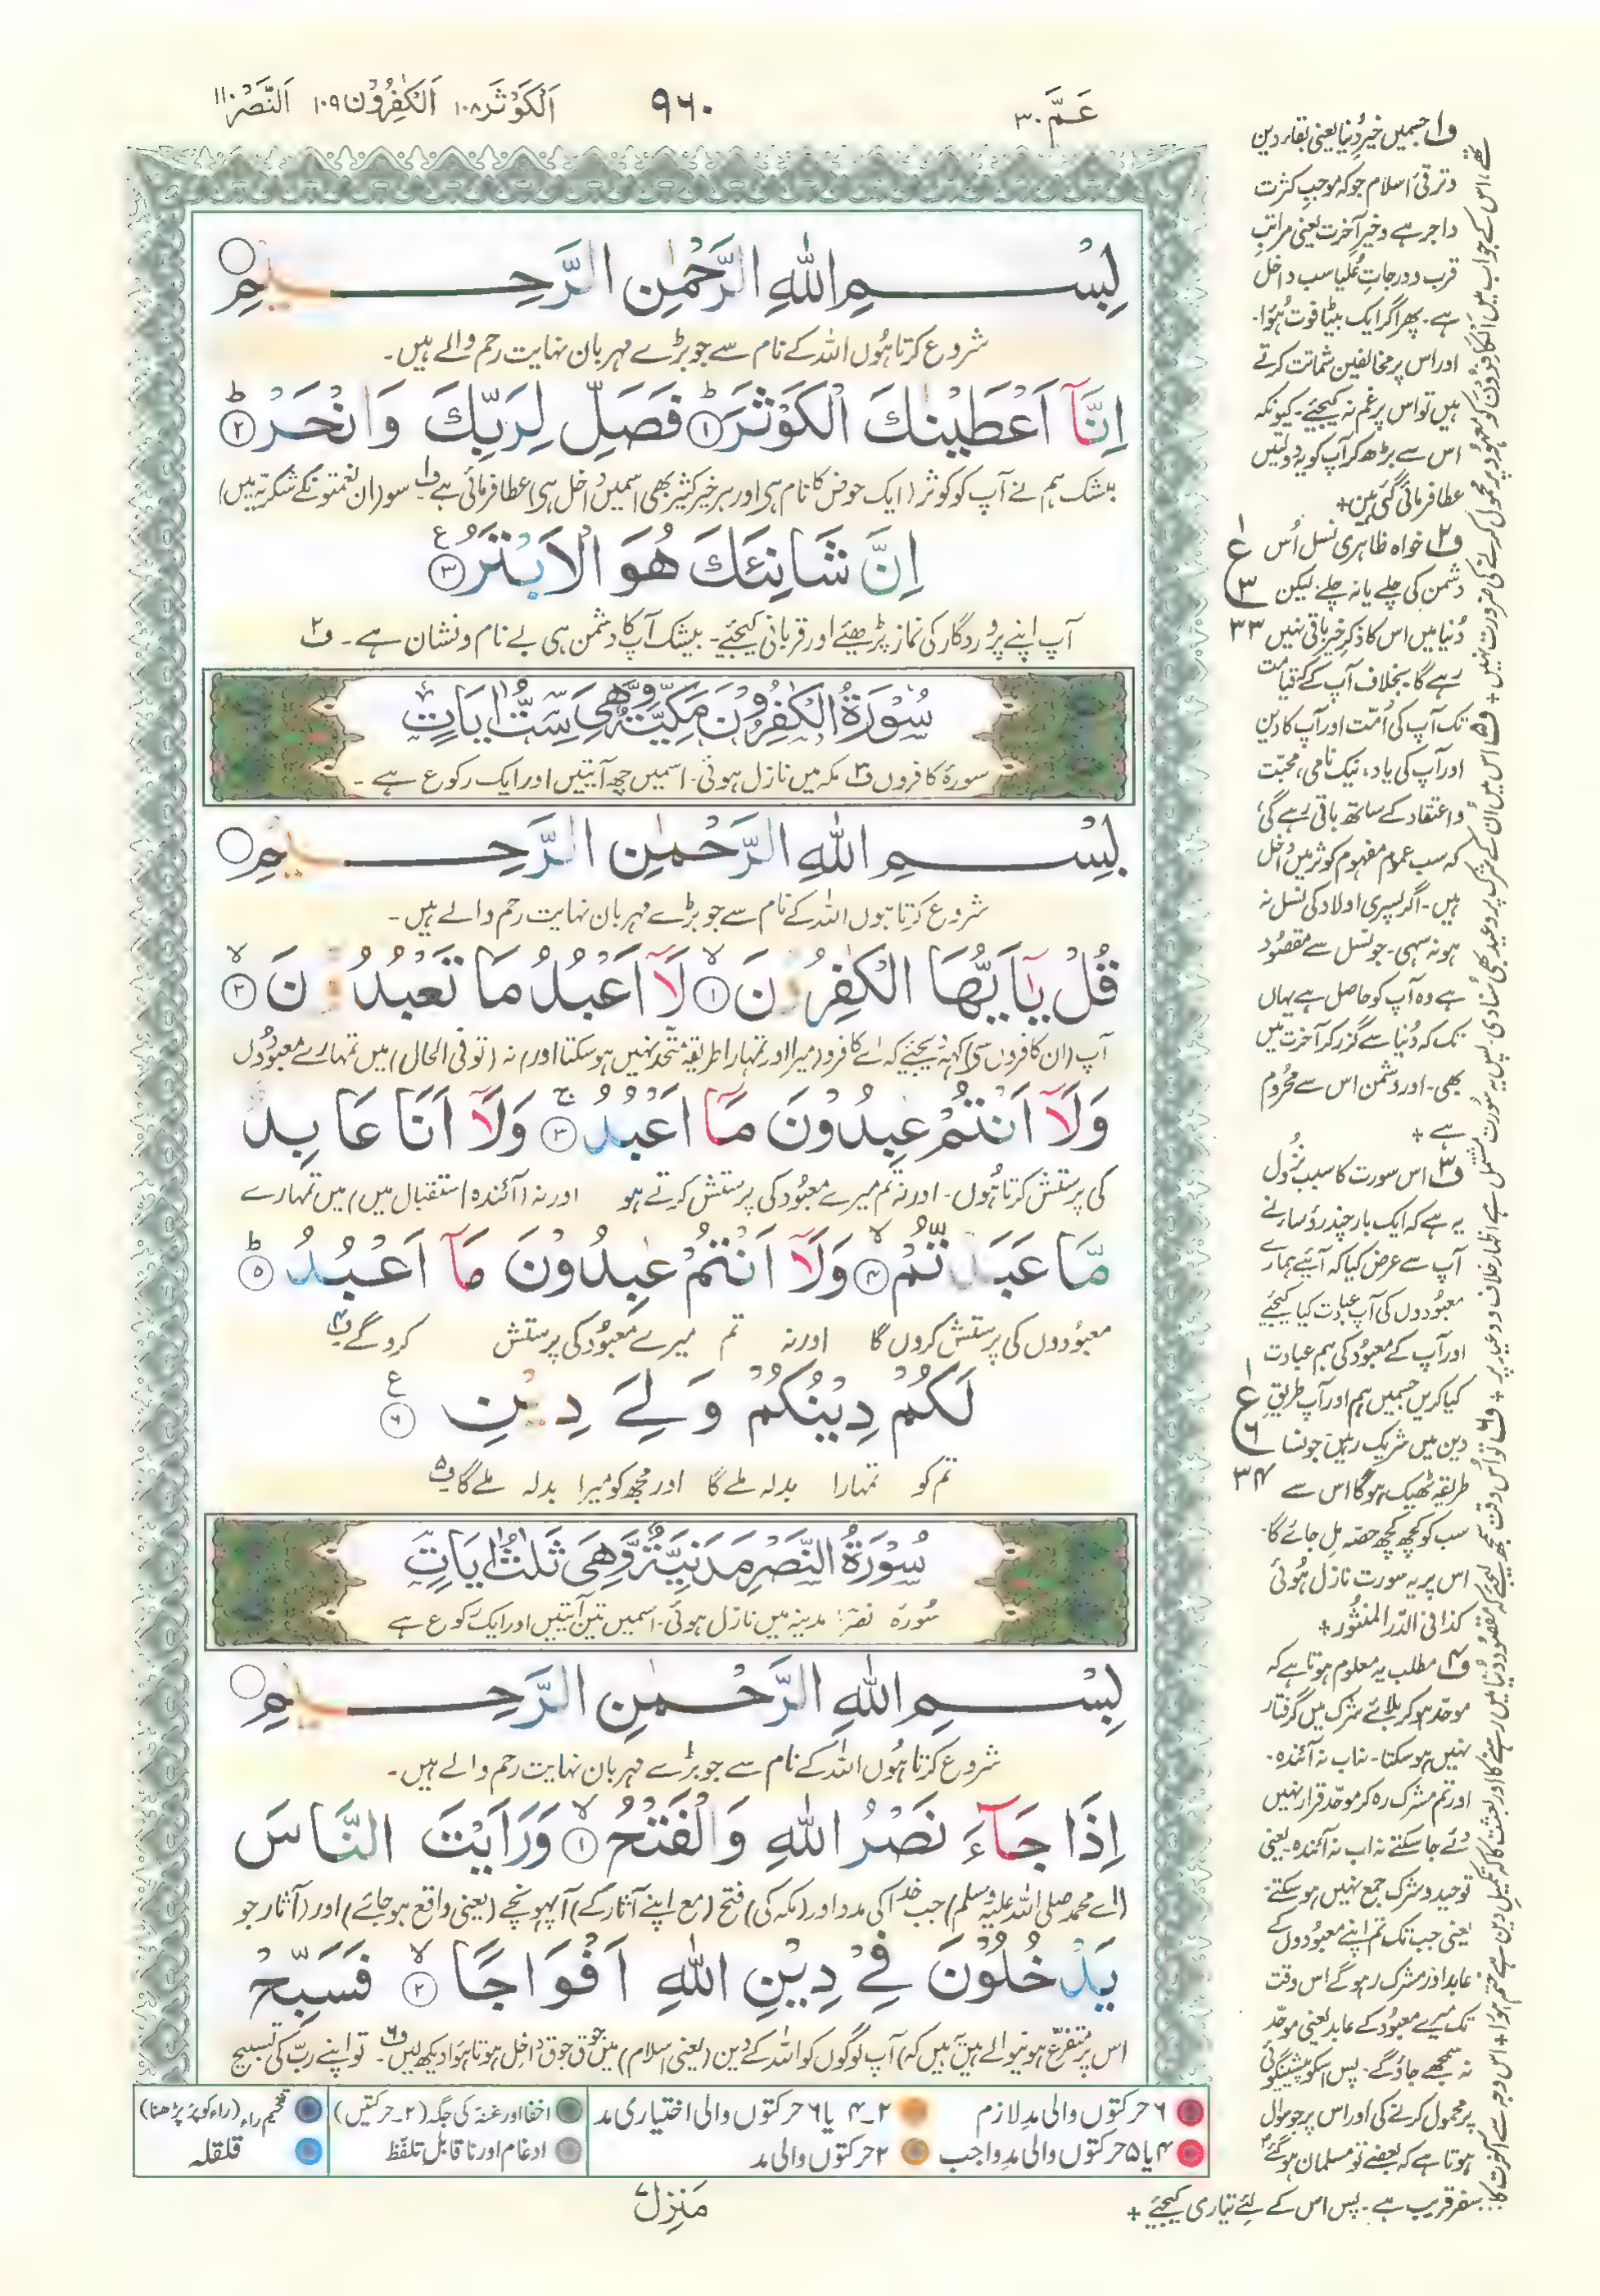 عَمَّ ٣٠
٩٦٠
اَلْكَوْثَر ١٠٨ اَلْكٰفِرُوْن ١٠٩ اَلنَّصْر ١١٠
بِسْمِ اللّٰهِ الرَّحْمٰنِ الرَّحِيْمِ
شروع کرتا ہوں اللہ کے نام سے جو بڑے مہربان نہایت رحم والے ہیں۔
اِنَّآ اَعْطَيْنٰكَ الْكَوْثَرَ ؕ﴿١﴾ فَصَلِّ لِرَبِّكَ وَانْحَرْ ؕ﴿٢﴾
بیشک ہم نے آپ کو کوثر (ایک حوض کا نام ہی اور ہر خیر کثیر بھی اسمیں داخل ہی) عطا فرمائی ہے ف۱ سو (ان نعمتونکے شکریہ میں)
اِنَّ شَانِئَكَ هُوَ الْاَبْتَرُ ﴿٣﴾ ع
آپ اپنے پروردگار کی نماز پڑھئے اور قربانی کیجئے۔ بیشک آپ کا دشمن ہی بے نام و نشان ہے۔ ف۲
سُوْرَةُ الْكٰفِرُوْنَ مَكِّيَّةٌ وَّهِيَ سِتُّ اٰيَاتٍ
سورۂ کافروں ف۳ مکہ میں نازل ہوئی۔ اسمیں چھ آیتیں اور ایک رکوع ہے ۔
بِسْمِ اللّٰهِ الرَّحْمٰنِ الرَّحِيْمِ
شروع کرتا ہوں اللہ کے نام سے جو بڑے مہربان نہایت رحم والے ہیں۔
قُلْ يٰٓاَيُّهَا الْكٰفِرُوْنَ ۙ﴿١﴾ لَآ اَعْبُدُ مَا تَعْبُدُوْنَ ۙ﴿٢﴾
آپ (ان کافروں سے) کہہ دیجئے کہ اے کافرو (میرا اور تمہارا طریقہ متحد نہیں ہو سکتا اور) نہ (تو فی الحال) میں تمہارے معبودوں
وَلَآ اَنْتُمْ عٰبِدُوْنَ مَآ اَعْبُدُ ۚ﴿٣﴾ وَلَآ اَنَا عَابِدٌ
کی پرستش کرتا ہوں۔ اور نہ تم میرے معبود کی پرستش کرتے ہو اور نہ (آئندہ استقبال میں) میں تمہارے
مَّا عَبَدْتُّمْ ۙ﴿٤﴾ وَلَآ اَنْتُمْ عٰبِدُوْنَ مَآ اَعْبُدُ ؕ﴿٥﴾
معبودوں کی پرستش کروں گا اور نہ تم میرے معبود کی پرستش کرو گے ف۴
لَكُمْ دِيْنُكُمْ وَلِيَ دِيْنِ ﴿٦﴾ ع
تم کو تمہارا بدلہ ملے گا اور مجھ کو میرا بدلہ ملے گا ف۵
سُوْرَةُ النَّصْرِ مَدَنِيَّةٌ وَّهِيَ ثَلٰثُ اٰيَاتٍ
سورۂ نصر مدینہ میں نازل ہوئی۔ اسمیں تین آیتیں اور ایک رکوع ہے
بِسْمِ اللّٰهِ الرَّحْمٰنِ الرَّحِيْمِ
شروع کرتا ہوں اللہ کے نام سے جو بڑے مہربان نہایت رحم والے ہیں۔
اِذَا جَآءَ نَصْرُ اللّٰهِ وَالْفَتْحُ ۙ﴿١﴾ وَرَاَيْتَ النَّاسَ
(اے محمد صلی اللہ علیہ وسلم) جب خدا کی مدد اور (مکہ کی) فتح (مع اپنے آثار کے) آ پہونچے (یعنی واقع ہو جائے) اور (آثار جو
يَدْخُلُوْنَ فِيْ دِيْنِ اللّٰهِ اَفْوَاجًا ۙ﴿٢﴾ فَسَبِّحْ
اس پر متفرع ہونیوالے ہیں یہ ہیں کہ) آپ لوگوں کو اللہ کے دین (یعنی اسلام) میں جوق جوق داخل ہوتا ہوا دیکھ لیں ف۶۔ تو اپنے رب کی تسبیح
۶ حرکتوں والی مد لازم
۲۔۴ یا ۶ حرکتوں والی اختیاری مد
اخفا اور غنہ کی جگہ (۲۔حرکتیں)
تفخیم راء (راء کو پُر پڑھنا)
۴ یا ۵ حرکتوں والی مد واجب
۲ حرکتوں والی مد
ادغام اور ناقابل تلفظ
قلقلہ
مَنْزِل ٧
ف۱ جسمیں خیر دنیا یعنی بقاء دین
و ترقیٔ اسلام جو کہ موجب کثرت
و اجر ہے و خیر آخرت یعنی مراتب
قرب و درجات علیا سب داخل
ہے۔ پھر اگر ایک بیٹا فوت ہوا۔
اور اس پر مخالفین شماتت کرتے
ہیں تو اس پر غم نہ کیجئے۔ کیونکہ
اس سے بڑھ کر آپ کو یہ دولتیں
عطا فرمائی گئی ہیں+
ف۲ خواہ ظاہری نسل اُس
دشمن کی چلے یا نہ چلے لیکن
دنیا میں اس کا ذکر خیر باقی نہیں
رہے گا۔ بخلاف آپ کے کہ قیامت
تک آپ کی اُمت اور آپ کا دین
اور آپ کی یاد، نیک نامی، محبت
و اعتقاد کے ساتھ باقی رہے گی
کہ سب عموم مفہوم کوثر میں داخل
ہیں۔ اگر پسری اولاد کی نسل نہ
ہو نہ سہی۔ جو نسل سے مقصود
ہے وہ آپ کو حاصل ہے یہاں
تک کہ دنیا سے گزر کر آخرت میں
بھی۔ اور دشمن اس سے محروم
ہے +
ف۳ اس سورت کا سبب نزول
یہ ہے کہ ایک بار چند رؤسا نے
آپ سے عرض کیا کہ آئیے ہمارے
معبودوں کی آپ عبادت کیا کیجئے
اور آپ کے معبود کی ہم عبادت
کیا کریں جسمیں ہم اور آپ طریقِ
دین میں شریک رہیں جونسا
طریقہ ٹھیک ہوگا اس سے
سب کو کچھ کچھ حصہ مل جائے گا۔
اس پر یہ سورت نازل ہوئی
کذا فی الدر المنثور+
ف۴ مطلب یہ معلوم ہوتا ہے کہ
موحد ہو کر بلائے شرک میں گرفتار
نہیں ہو سکتا۔ نہ اب نہ آئندہ۔
اور تم مشرک رہ کر موحد قرار نہیں
دئے جا سکتے نہ اب نہ آئندہ۔ یعنی
توحید و شرک جمع نہیں ہو سکتے۔
یعنی جب تک تم اپنے معبودوں کے
عابد اور مشرک رہو گے اس وقت
تک میرے معبود کے عابد یعنی موحد
نہ سمجھے جاؤ گے۔ پس اسکو پیشینگوئی
پر محمول کرنے کی اور اس پر جو سوال
ہوتا ہے کہ بعضے تو مسلمان ہو گئے
تھے، اس کے جواب میں الکافرون کو معہود پر محمول کرنے کی ضرورت نہیں +
ف۵ اس میں اُن کے شرک پر وعید بھی سنا دی۔ پس یہ سورت مشتمل ہے اظہار خلاف و وعید پر +
ف۶ تو اس وقت سمجھ لیجئے کہ مقصود دنیا میں رہنے کا اور بعثت کا کہ تکمیل دین ہے ختم ہوا + اس وجہ سے آخرت کا
سفر قریب ہے۔ پس اس کے لئے تیاری کیجئے +
ع ١ ٣ ٣٣
ع ١ ٦ ٣٤